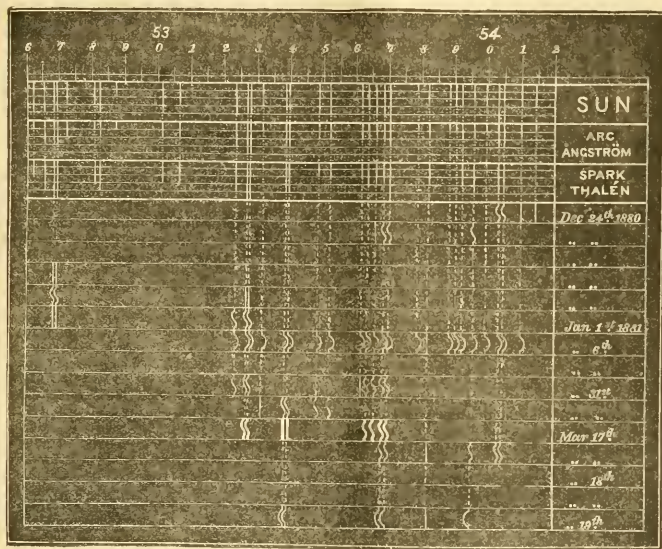 53 54
6 7 8 9 0 1 2 3 4 5 6 7 8 9 0 1 2
SUN
ARC
ÅNGSTRÖM
SPARK
THALÉN
Dec 24th 1880
" "
" "
" "
" "
Jan 1st 1881
" 6th
" "
" 31st
" "
Mar 17th
" "
" 18th
" "
" 19th